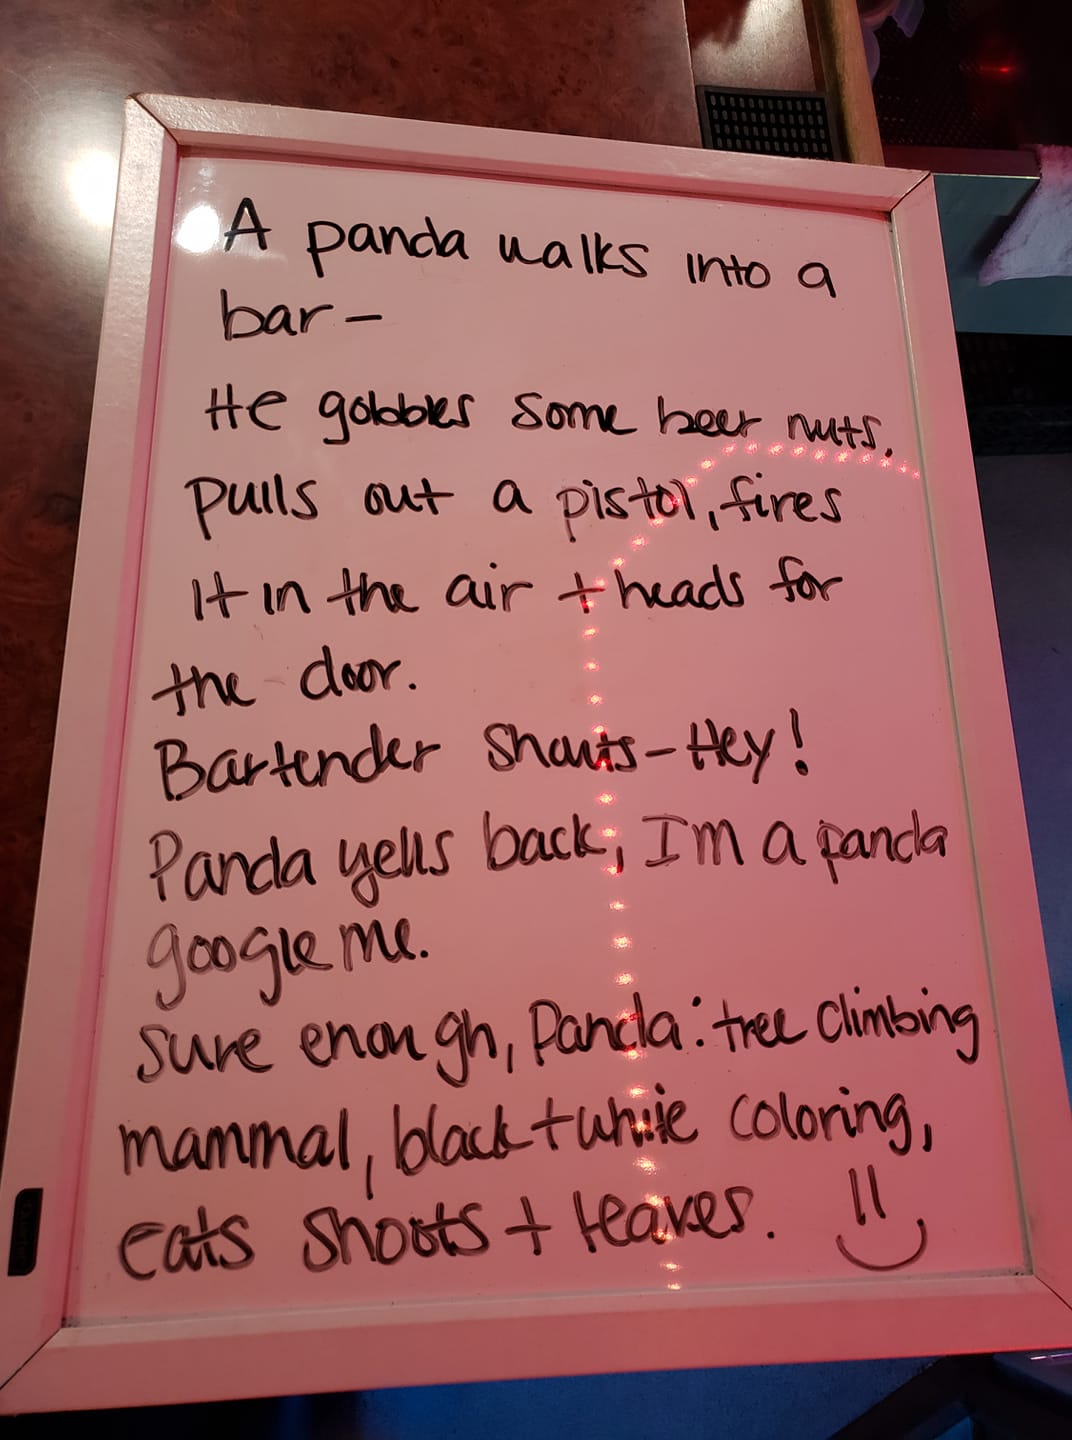 A panda walks into a
bar-
He gobbles some beer nuts,
pulls out a pistol, fires
It in the air + heads for
the door.
Bartender Shouts-Hey!
Panda yells back, I'm a panda
google me.
Sure enough, Panda: tree climbing
mammal, black + white coloring,
eats shoots + leaves.